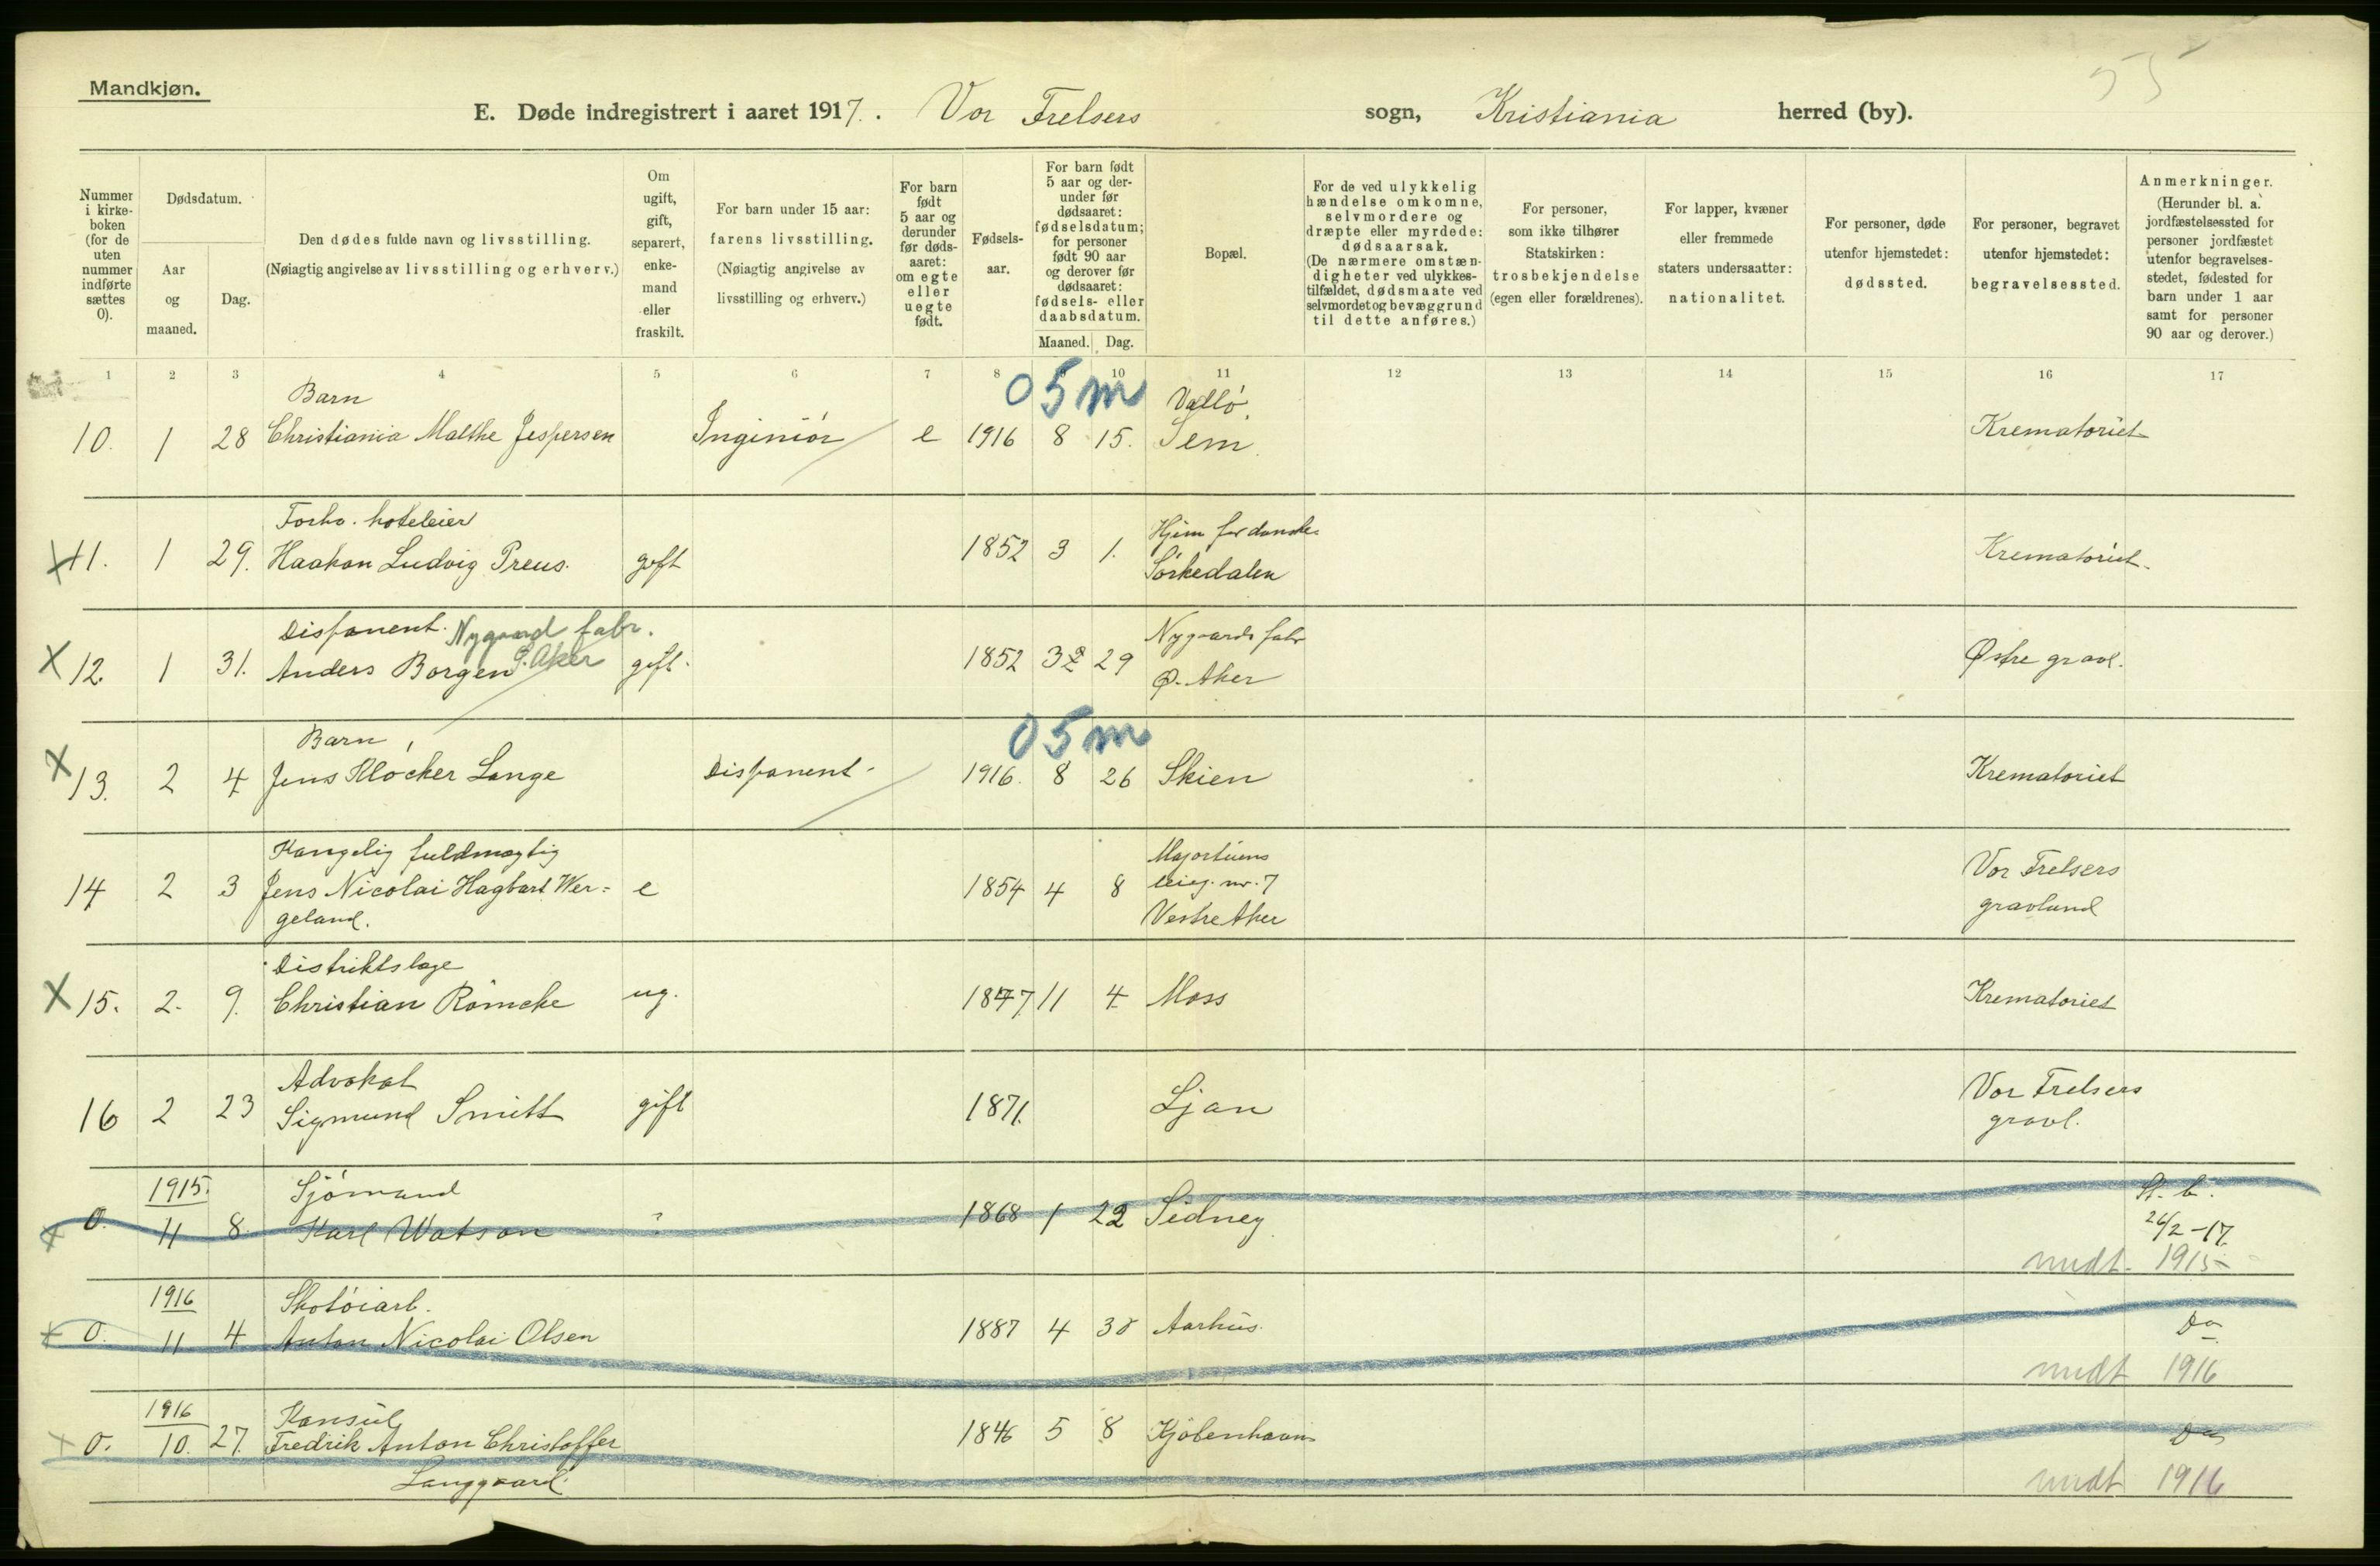 55
Mandkjøn.
E. Døde indregistrert i aaret 1917. Vor Frelsers sogn, Kristiania herred (by).
Nummer i kirke-boken (for de uten nummer indførte sættes 0).
Dødsdatum.
Aar og maaned.
Dag.
Den dødes fulde navn og livsstilling.
(Nøiagtig angivelse av livsstilling og erhverv.)
Om ugift, gift, separert, enke-mand eller fraskilt.
For barn under 15 aar: farens livsstilling.
(Nøiagtig angivelse av livsstilling og erhverv.)
For barn født 5 aar og derunder før døds-aaret: om egte eller uegte født.
Fødsels-aar.
For barn født 5 aar og der-under før dødsaaret: fødselsdatum; for personer født 90 aar og derover før dødsaaret: fødsels- eller daabsdatum.
Maaned. Dag.
Bopæl.
For de ved ulykkelig hændelse omkomne, selvmordere og dræpte eller myrdede: dødsaarsak.
(De nærmere omstæn-digheter ved ulykkes-tilfældet, dødsmaate ved selvmordet og bevæggrund til dette anføres.)
For personer, som ikke tilhører Statskirken: trosbekjendelse (egen eller forældrenes).
For lapper, kvæner eller fremmede staters undersaatter: nationalitet.
For personer, døde utenfor hjemstedet: dødssted.
For personer, begravet utenfor hjemstedet: begravelsessted.
Anmerkninger.
(Herunder bl. a. jordfæstelsessted for personer jordfæstet utenfor begravelses-stedet, fødested for barn under 1 aar samt for personer 90 aar og derover.)
1 2 3 4 5 6 7 8 9 10 11 12 13 14 15 16 17
Barn 05m Vallö.
10. 1 28 Christiania Malthe Jespersen Inginiör e 1916 8 15. Sem. Krematoriet
Forhv. hoteleier Hjem for danske
X 11. 1 29. Haakon Ludvig Preus. gift 1852 3 1. Sörkedalen Krematoriet.
Disponent. Nygaard fabr. Nygaards fabr
X 12. 1 31. Anders Borgen Ö. Aker gift. 1852 2 29 Ø. Aker Østre gravl.
Barn 05m
X 13. 2 4 Jens Klöcker Lange Disponent 1916. 8 26 Skien Krematoriet
Kangelig fuldmægtig Majorstuens Vor Frelsers
14 2 3 Jens Nicolai Hagbart Wer= e 1854 4 8 leieg. nr. 7 gravlund
geland. Vestre Aker
Distriktslæge
X 15. 2. 9. Christian Römcke ug. 1847 11 4 Moss Krematoriet
Advokat Vor Frelsers
16 2 23 Sigmund Smitt gift 1871. Ljan gravl.
1915. Sjömand St. b.
X 0. 11 8. Karl Watson ? 1868 1 22 Sidney 26/2-17
mdt. 1915
1916 Skotöiarb.
X 0. 11 4 Anton Nicolai Olsen 1887 4 30 Aarhus. Do
mdt 1916
1916 Konsul
X 0. 10. 27. Fredrik Anton Christoffer 1846 5 8 Kjöbenhavn Do
Langgaard. mdt 1916